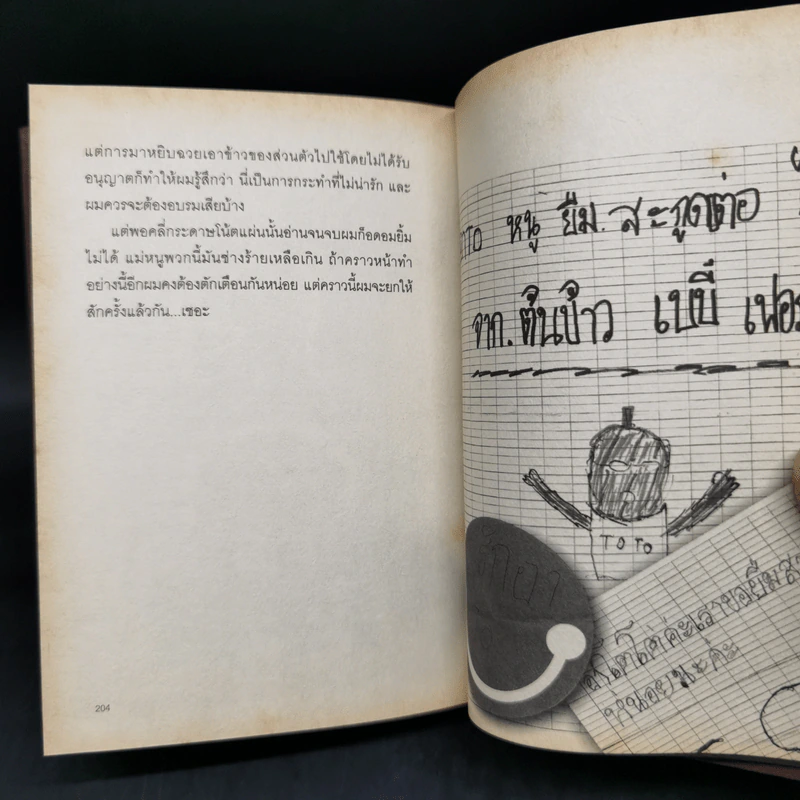 แต่การมาหยิบฉวยเอาข้าวของส่วนตัวไปใช้โดยไม่ได้รับ
อนุญาตก็ทำให้ผมรู้สึกว่า นี่เป็นการกระทำที่ไม่น่ารัก และ
ผมควรจะต้องอบรมเสียบ้าง
แต่พอคลี่กระดาษโน้ตแผ่นนั้นอ่านจนจบผมก็อดอมยิ้ม
ไม่ได้ แม่หนูพวกนี้มันช่างร้ายเหลือเกิน ถ้าคราวหน้าทำ
อย่างนี้อีกผมคงต้องตักเตือนกันหน่อย แต่คราวนี้ผมจะยกให้
สักครั้งแล้วกัน...เชอะ
204
หนู ยืม. สะกูดเต่อ
จาก. ต้นข้าว เบบี้
TOTO
หน่อยนะคะ